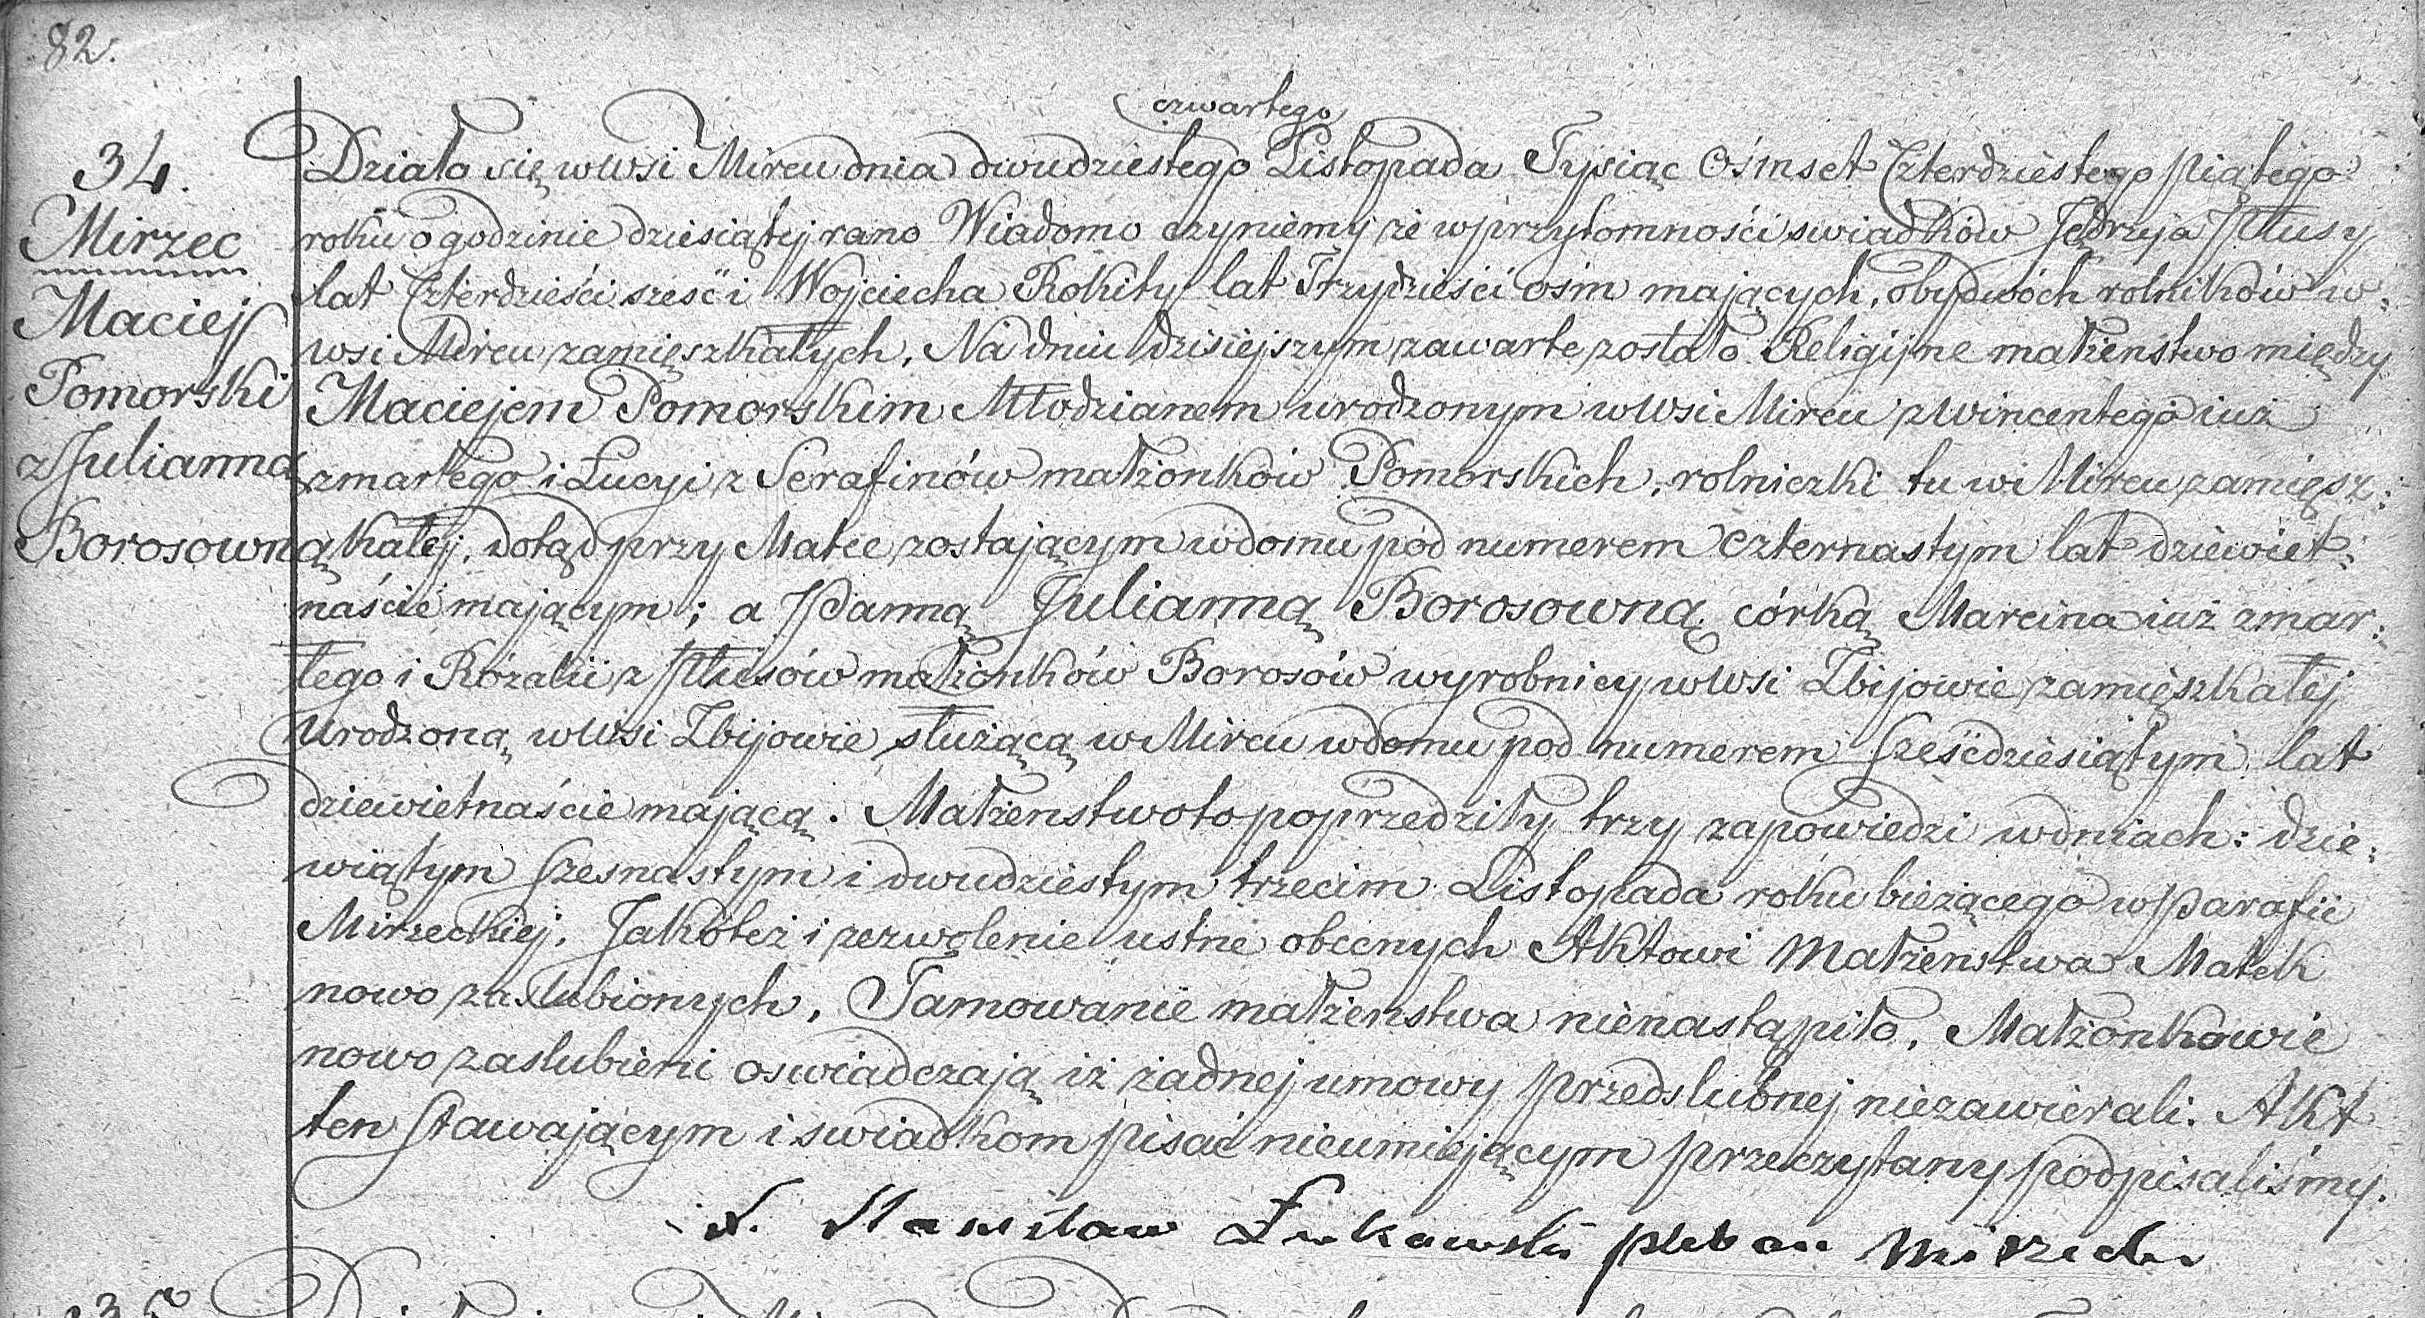 82.
czwartego
34.
Działo się wwsi Mircu dnia dwudziestego Listopada Tysiąc Ośmset Czterdziestego piątego
Mirzec
roku o godzinie dziesiątej rano Wiadomo czyniemy że wprzytomności swiadków Jędrzeja Plusy
lat Czterdzieści sześć i Wojciecha Rokity lat Trzydzieści ośm mających, obydwóch rolników w:
Maciej
wsi Mircu zamięszkałych, Na dniu dzisiejszym zawarte zostało Religijne małżenstwo między
Pomorski
Maciejem Pomorskim Młodzianem urodzonym wwsi Mircu z Wincentego iuż
z Julianną
zmarłego i Łucyi z Serafinów małżonków Pomorskich, rolniczki tu w Mircu zamięsz:
Borosowną
kałej, dotąd przy Matce zostającym wdomu pod numerem czternastym lat dziewiet:
naście mającym; a Panną Julianną Borosowną córką Marcina iuż zmar:
łego i Rozalii z Plusów małżonków Borosów wyrobnicy wwsi Zbijowie zamięszkałej
urodzoną wwsi Zbijowie służącą w Mircu wdomu pod numerem sześćdziesiątym lat
dziewietnaście mającą. Małżenstwo to poprzedziły trzy zapowiedzi wdniach: dzie:
wiątym szesnastym i dwudziestym trzecim Listopada roku bieżącego w Parafii
Mirzeckiej, Jakoteż i zezwolenie ustne obecnych Aktowi Małżenstwa Matek
nowo zaslubionych, Tamowanie małżenstwa nienastąpiło, Małżonkowie
nowo zaslubieni oswiadczają iż żadnej umowy przedslubnej niezawierali. Akt
ten stawającym i swiadkom pisać nieumiejącym przeczytany podpisaliśmy.
X. Stanisław Łukawski pleban Mirzecki
35